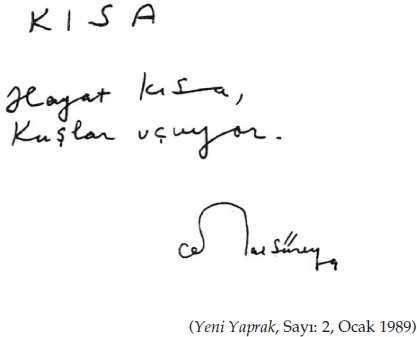 KISA
Hayat kısa,
Kuşlar uçuyor.
Cemal Süreya
(Yeni Yaprak, Sayı: 2, Ocak 1989)